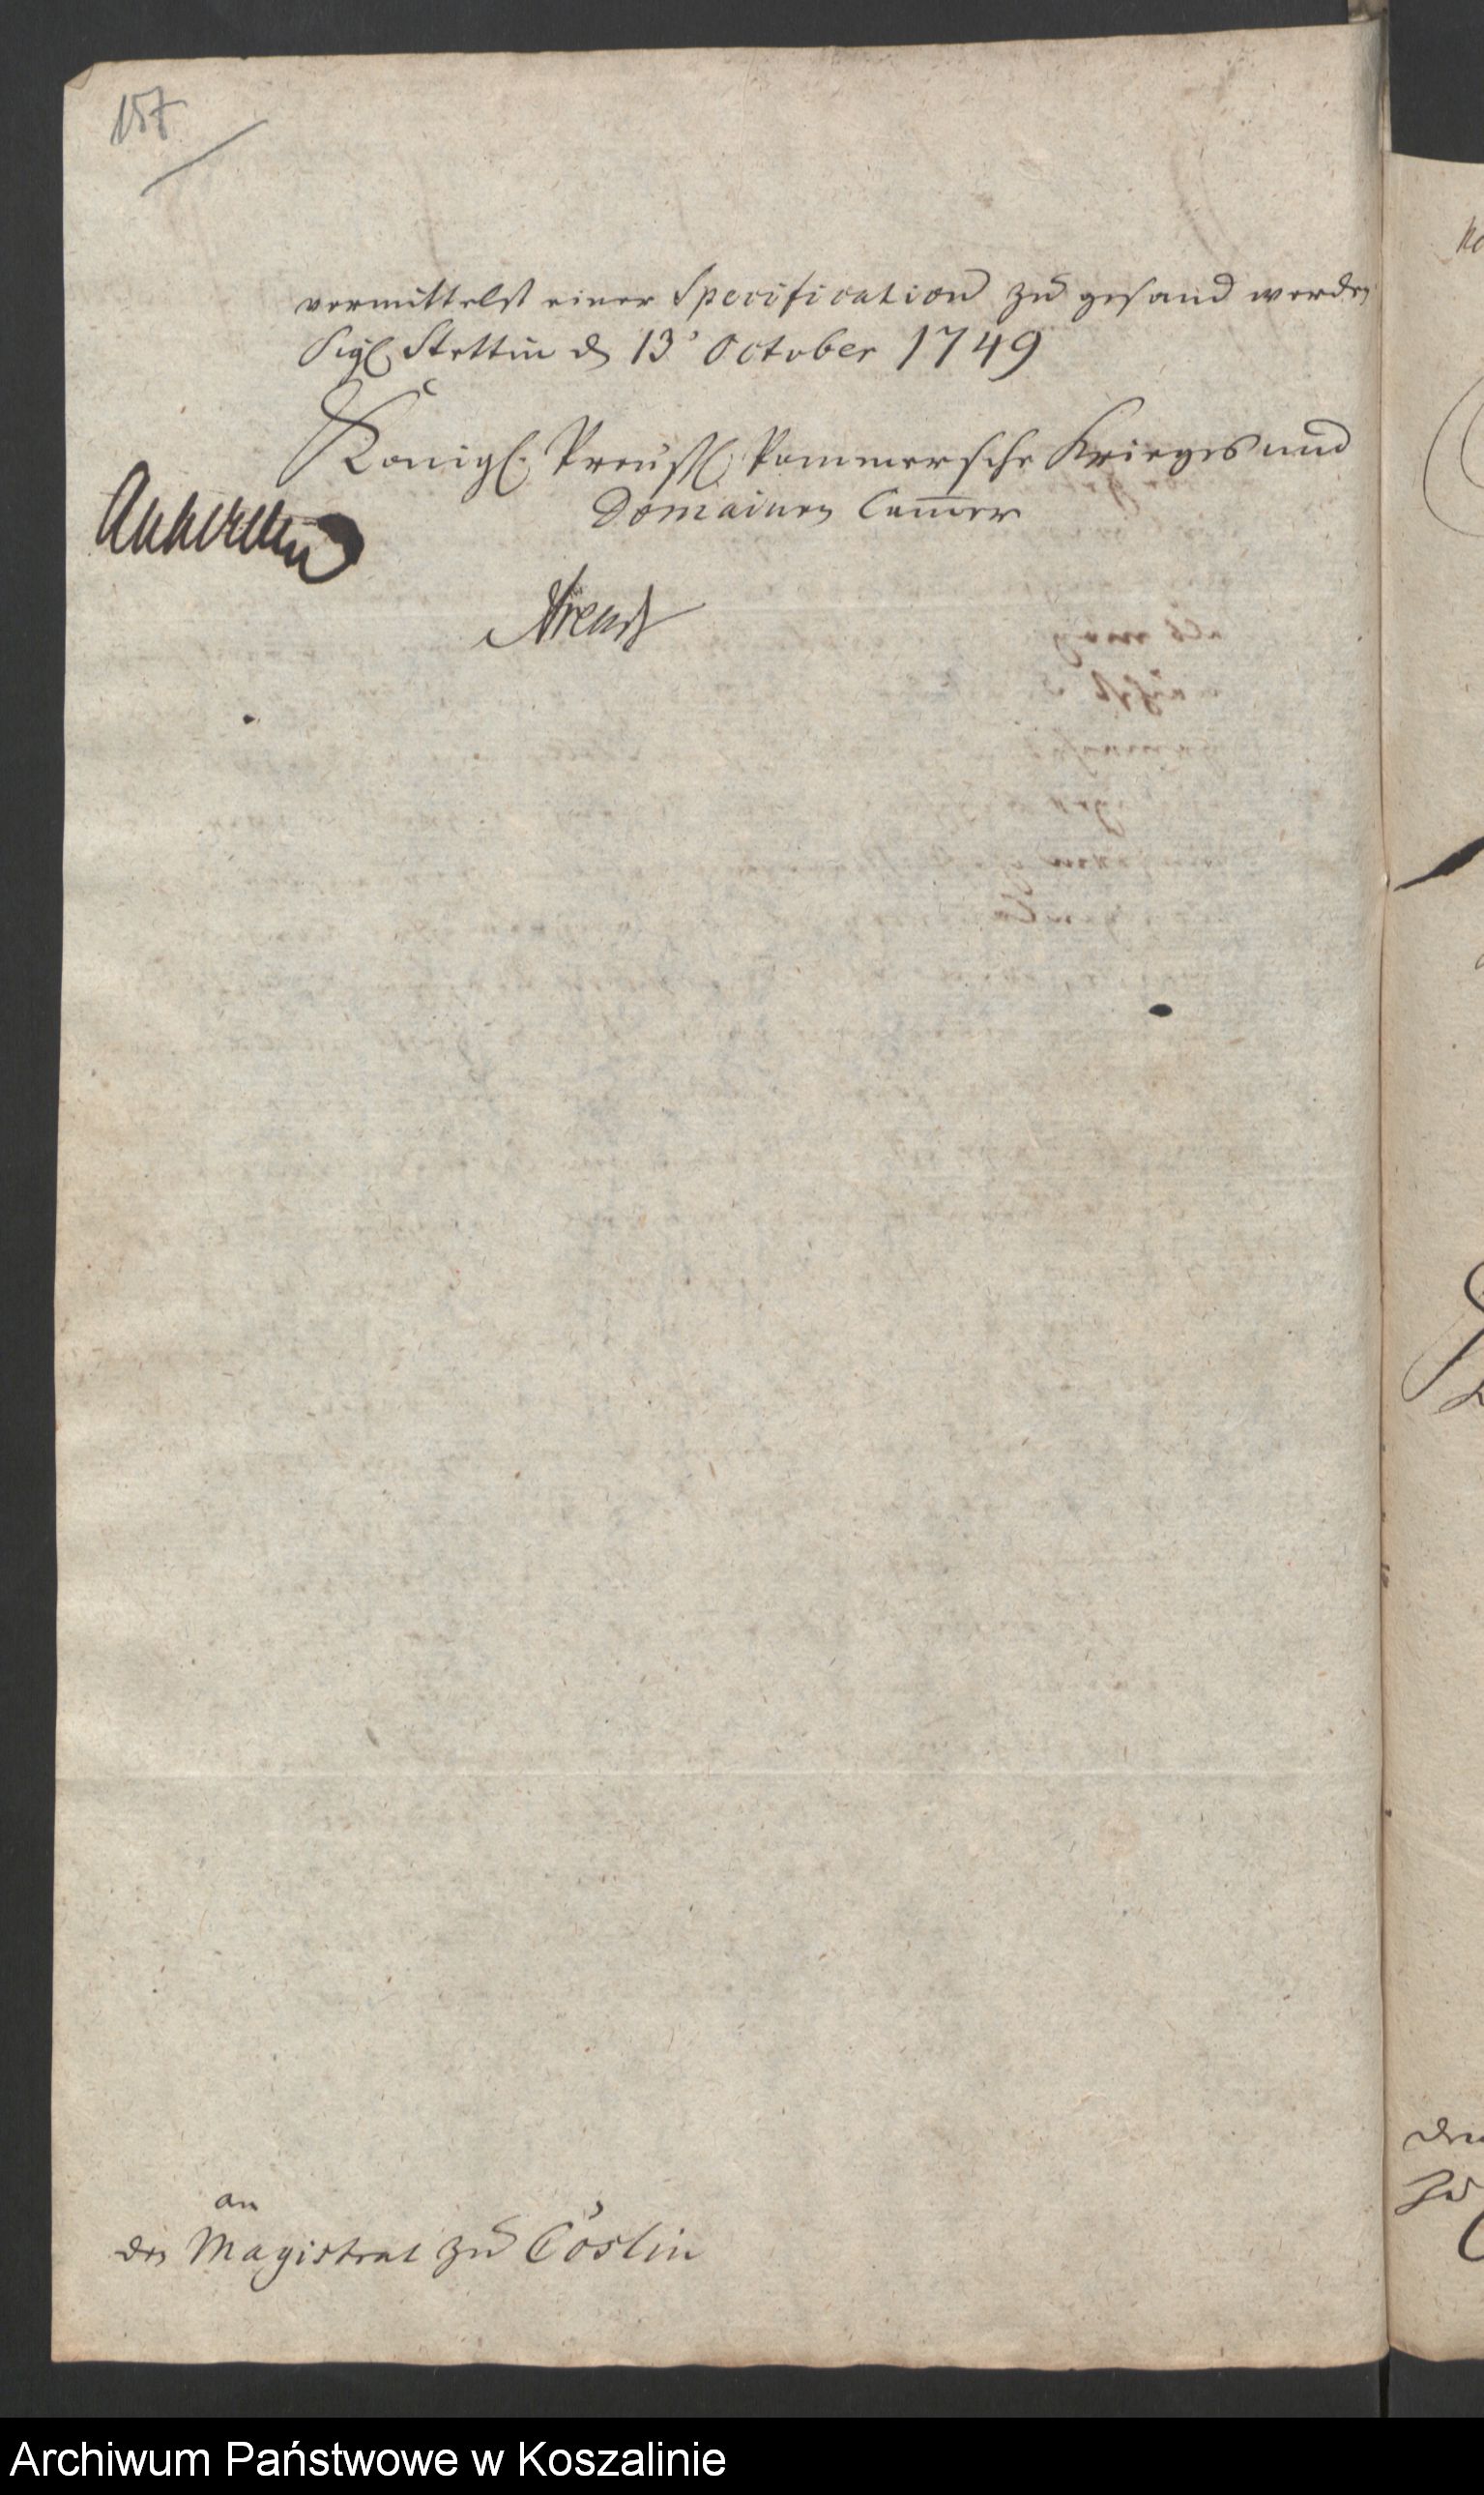 157
vermittelst einer Specification zu gesand werden
Sigl Stettin d 13' October 1749
Königl. Preußl. Pommersche Krieges und
Domainen Cammer
an
den Magistrat zu Cöslin
Archiwum Państwowe w Koszalinie